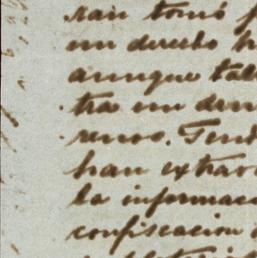 ran tomó p
un derecho h
aunque tal
tra un dem
renos. Tend
han extrav
la informac
confiscacion